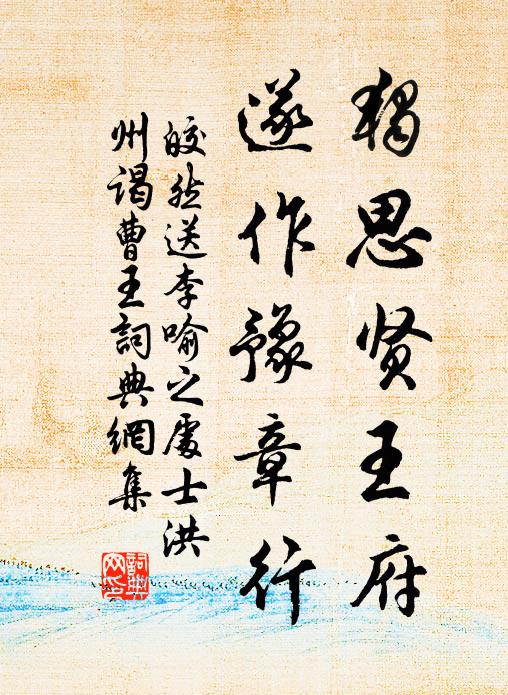 独思贤王府
遂作豫章行
皎然送李喻之處士洪
州謁曹王詞典網集
詞典
网